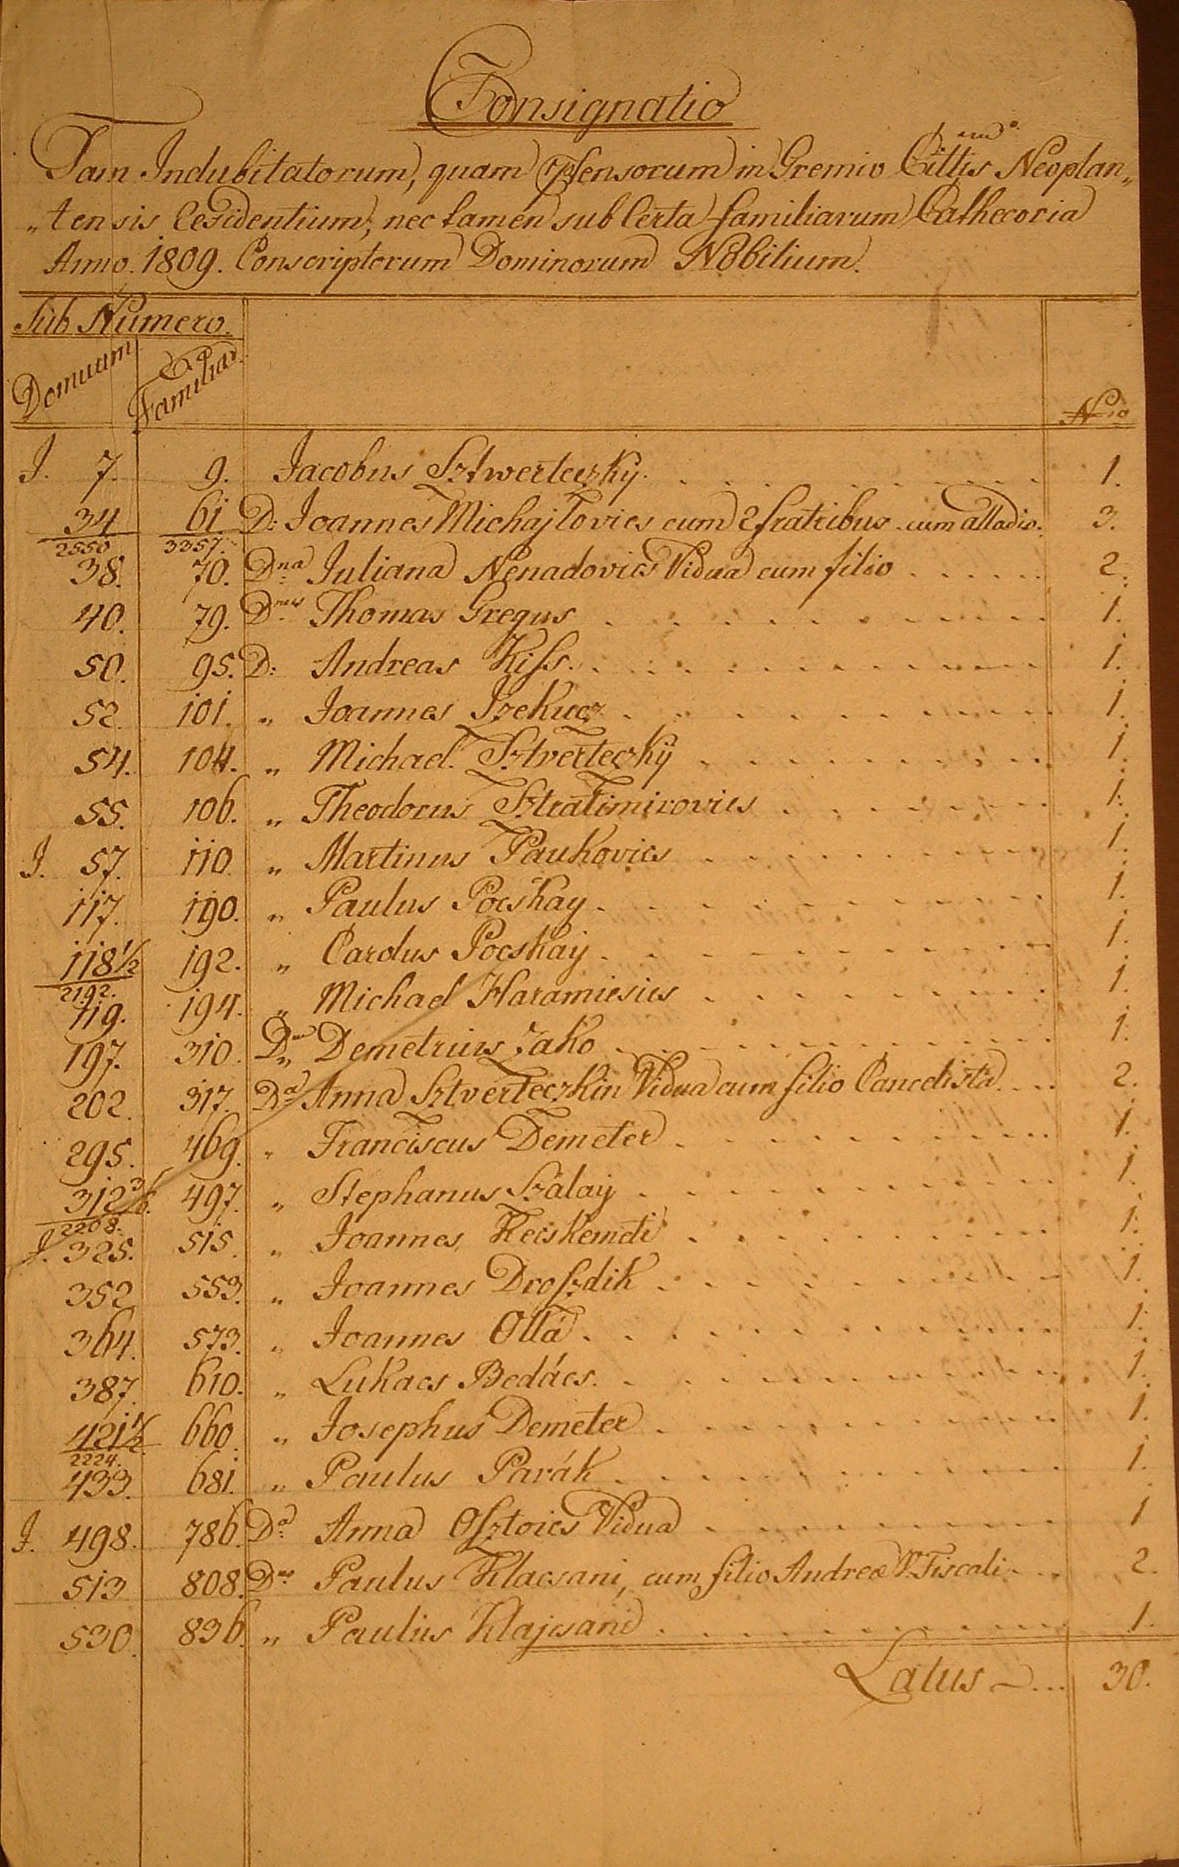 Consignatio
Tam Indubitatorum, quam in Gremio Cittis Neoplan„
„tensis Residentium, nec tamen sub Certa familiarum Cathecoria
Anno. 1809. Conscriptorum Dominorum Nobilium.
Sub Numero.
Domuum Familiar. Nro
J. 7. 9. Jacobus Sztwerteczky. 1.
34 61 D: Joannes Michajlovics cum 2 fratribus cum allodio. 3.
2550 3357.
38. 70. Dna Juliana Nenadovics Vidua cum filio 2.
40. 79. Dnus Thomas Gregus 1.
50. 95. D: Andreas Kiss. 1.
52. 101. „ Joannes Szekucz 1.
54. 104. „ Michael Sztverteczky 1.
55. 106. „ Theodorus Sztratimirovics 1.
J. 57. 110. „ Martinus Paukovics 1.
117. 190. „ Paulus Pocskay 1.
118½ 192. „ Carolus Pocskay 1.
2192.
119. 194. „ Michael Haramiesics 1.
197. 310. Dnus Demetrius Zako 1.
202. 317. Da Anna Sztverteczkin Vidua cum filio Cancelista 2.
295. 469. „ Franciscus Demeter 1.
312 3/6. 497. „ Stephanus Szalay 1.
2208.
J. 325. 515. „ Joannes Kecskemeti 1.
352 553. „ Joannes Droszdik 1.
364. 573. „ Joannes Otta 1.
387. 610. „ Lukacs Bedács. 1.
421½ 660. „ Josephus Demeter 1.
2224.
433. 681. „ Paulus Parák 1.
J. 498. 786. Da Anna Osztoics Vidua 1
513 808. Dnus Paulus Klacsani, cum filio Andrea V. Fiscali 2.
530. 836. „ Paulus Klajcsani 1.
Latus 30.